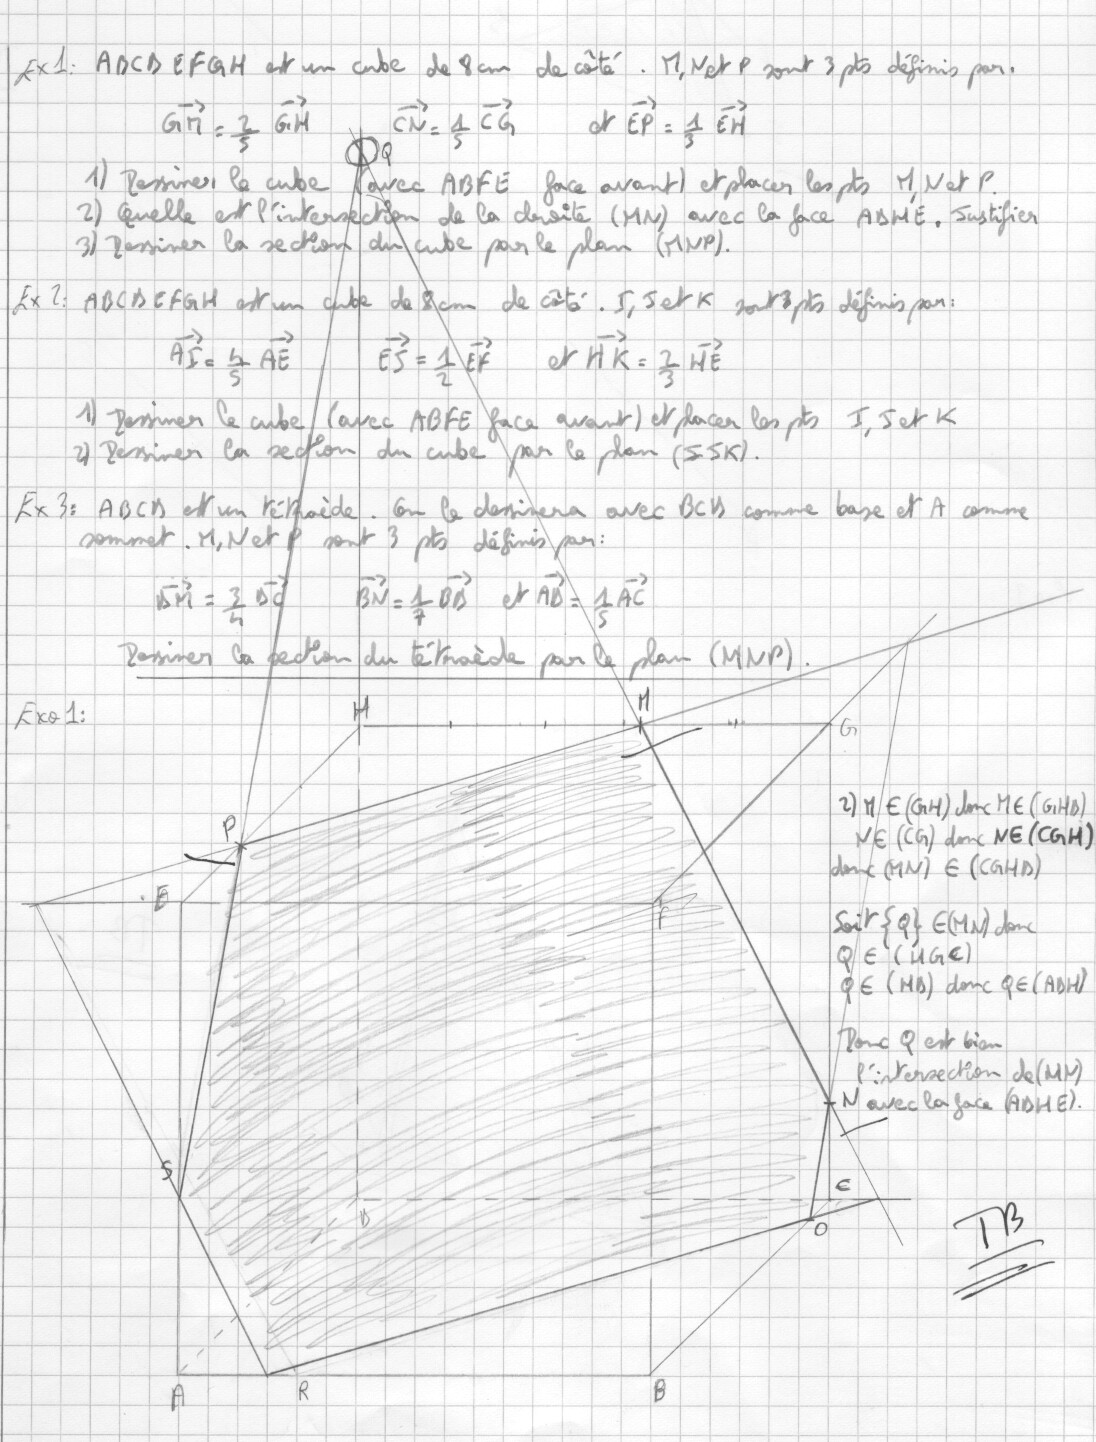 Ex1: ABCD EFGH est un cube de 8cm de côté. M, N et P sont 3 pts définis par.
GM = 2/5 GH CN = 1/5 CG et EP = 1/3 EH
Q
1) Dessiner le cube (avec ABFE face avant) et placer les pts M, N et P.
2) Quelle est l'intersection de la droite (MN) avec la face ADHE. Justifier
3) Dessiner la section du cube par le plan (MNP).
Ex2: ABCD EFGH est un cube de 8cm de côté. I, J et K sont 3 pts définis par:
AI = 4/5 AE EJ = 1/2 EF et HK = 2/3 HE
1) Dessiner le cube (avec ABFE face avant) et placer les pts I, J et K
2) Dessiner la section du cube par le plan (IJK).
Ex3: ABCD est un tétraède. On le dessinera avec BCD comme base et A comme
sommet. M, N et P sont 3 pts définis par:
DM = 3/4 DC BN = 1/7 BD et AD = 1/5 AC
Dessiner la section du tétraède par le plan (MNP).
Exo1:
H
M
G
P
E
F
2) M ∈ (GH) donc M ∈ (GHD)
N ∈ (CG) donc N ∈ (CGH)
donc (MN) ∈ (CGHD)
Soit {Q} ∈ (MN) donc
Q ∈ (HGC)
Q ∈ (HD) donc Q ∈ (ADH)
Donc Q est bien
l'intersection de (MN)
avec la face (ADHE).
N
S
D
C
O
TB
A
R
B